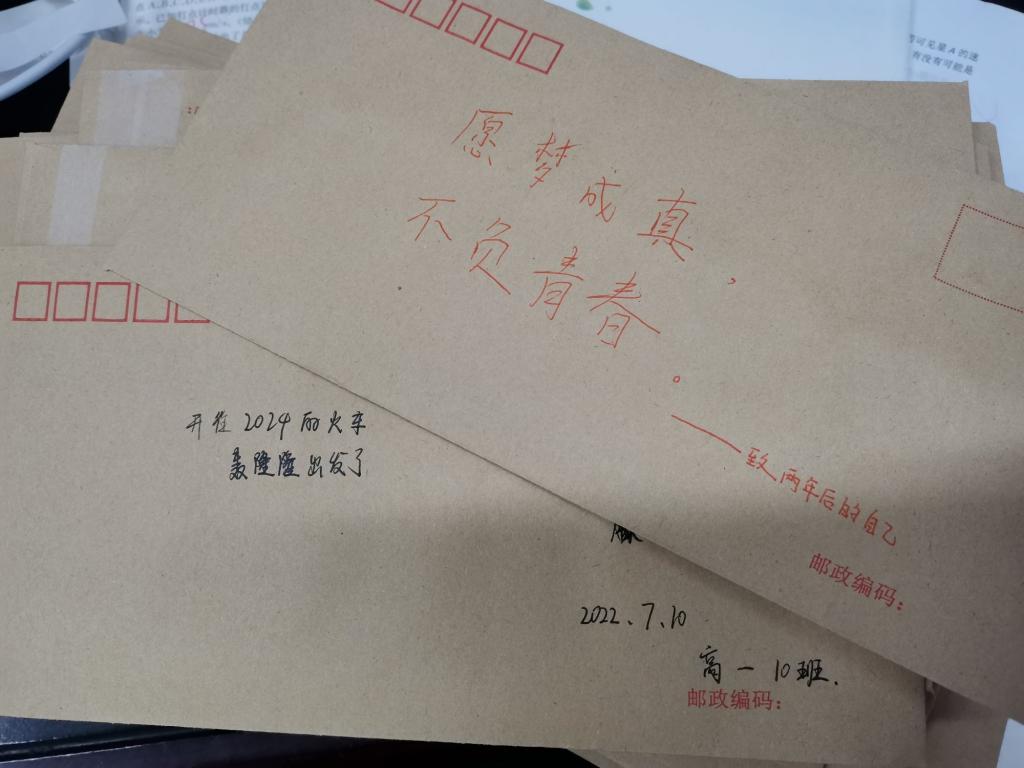 愿梦成真，
不负青春。
——致两年后的自己
邮政编码：
开往2024的火车
轰隆隆出发了
2022.7.10
高一10班.
邮政编码：
可见星A的速
有没有可能是